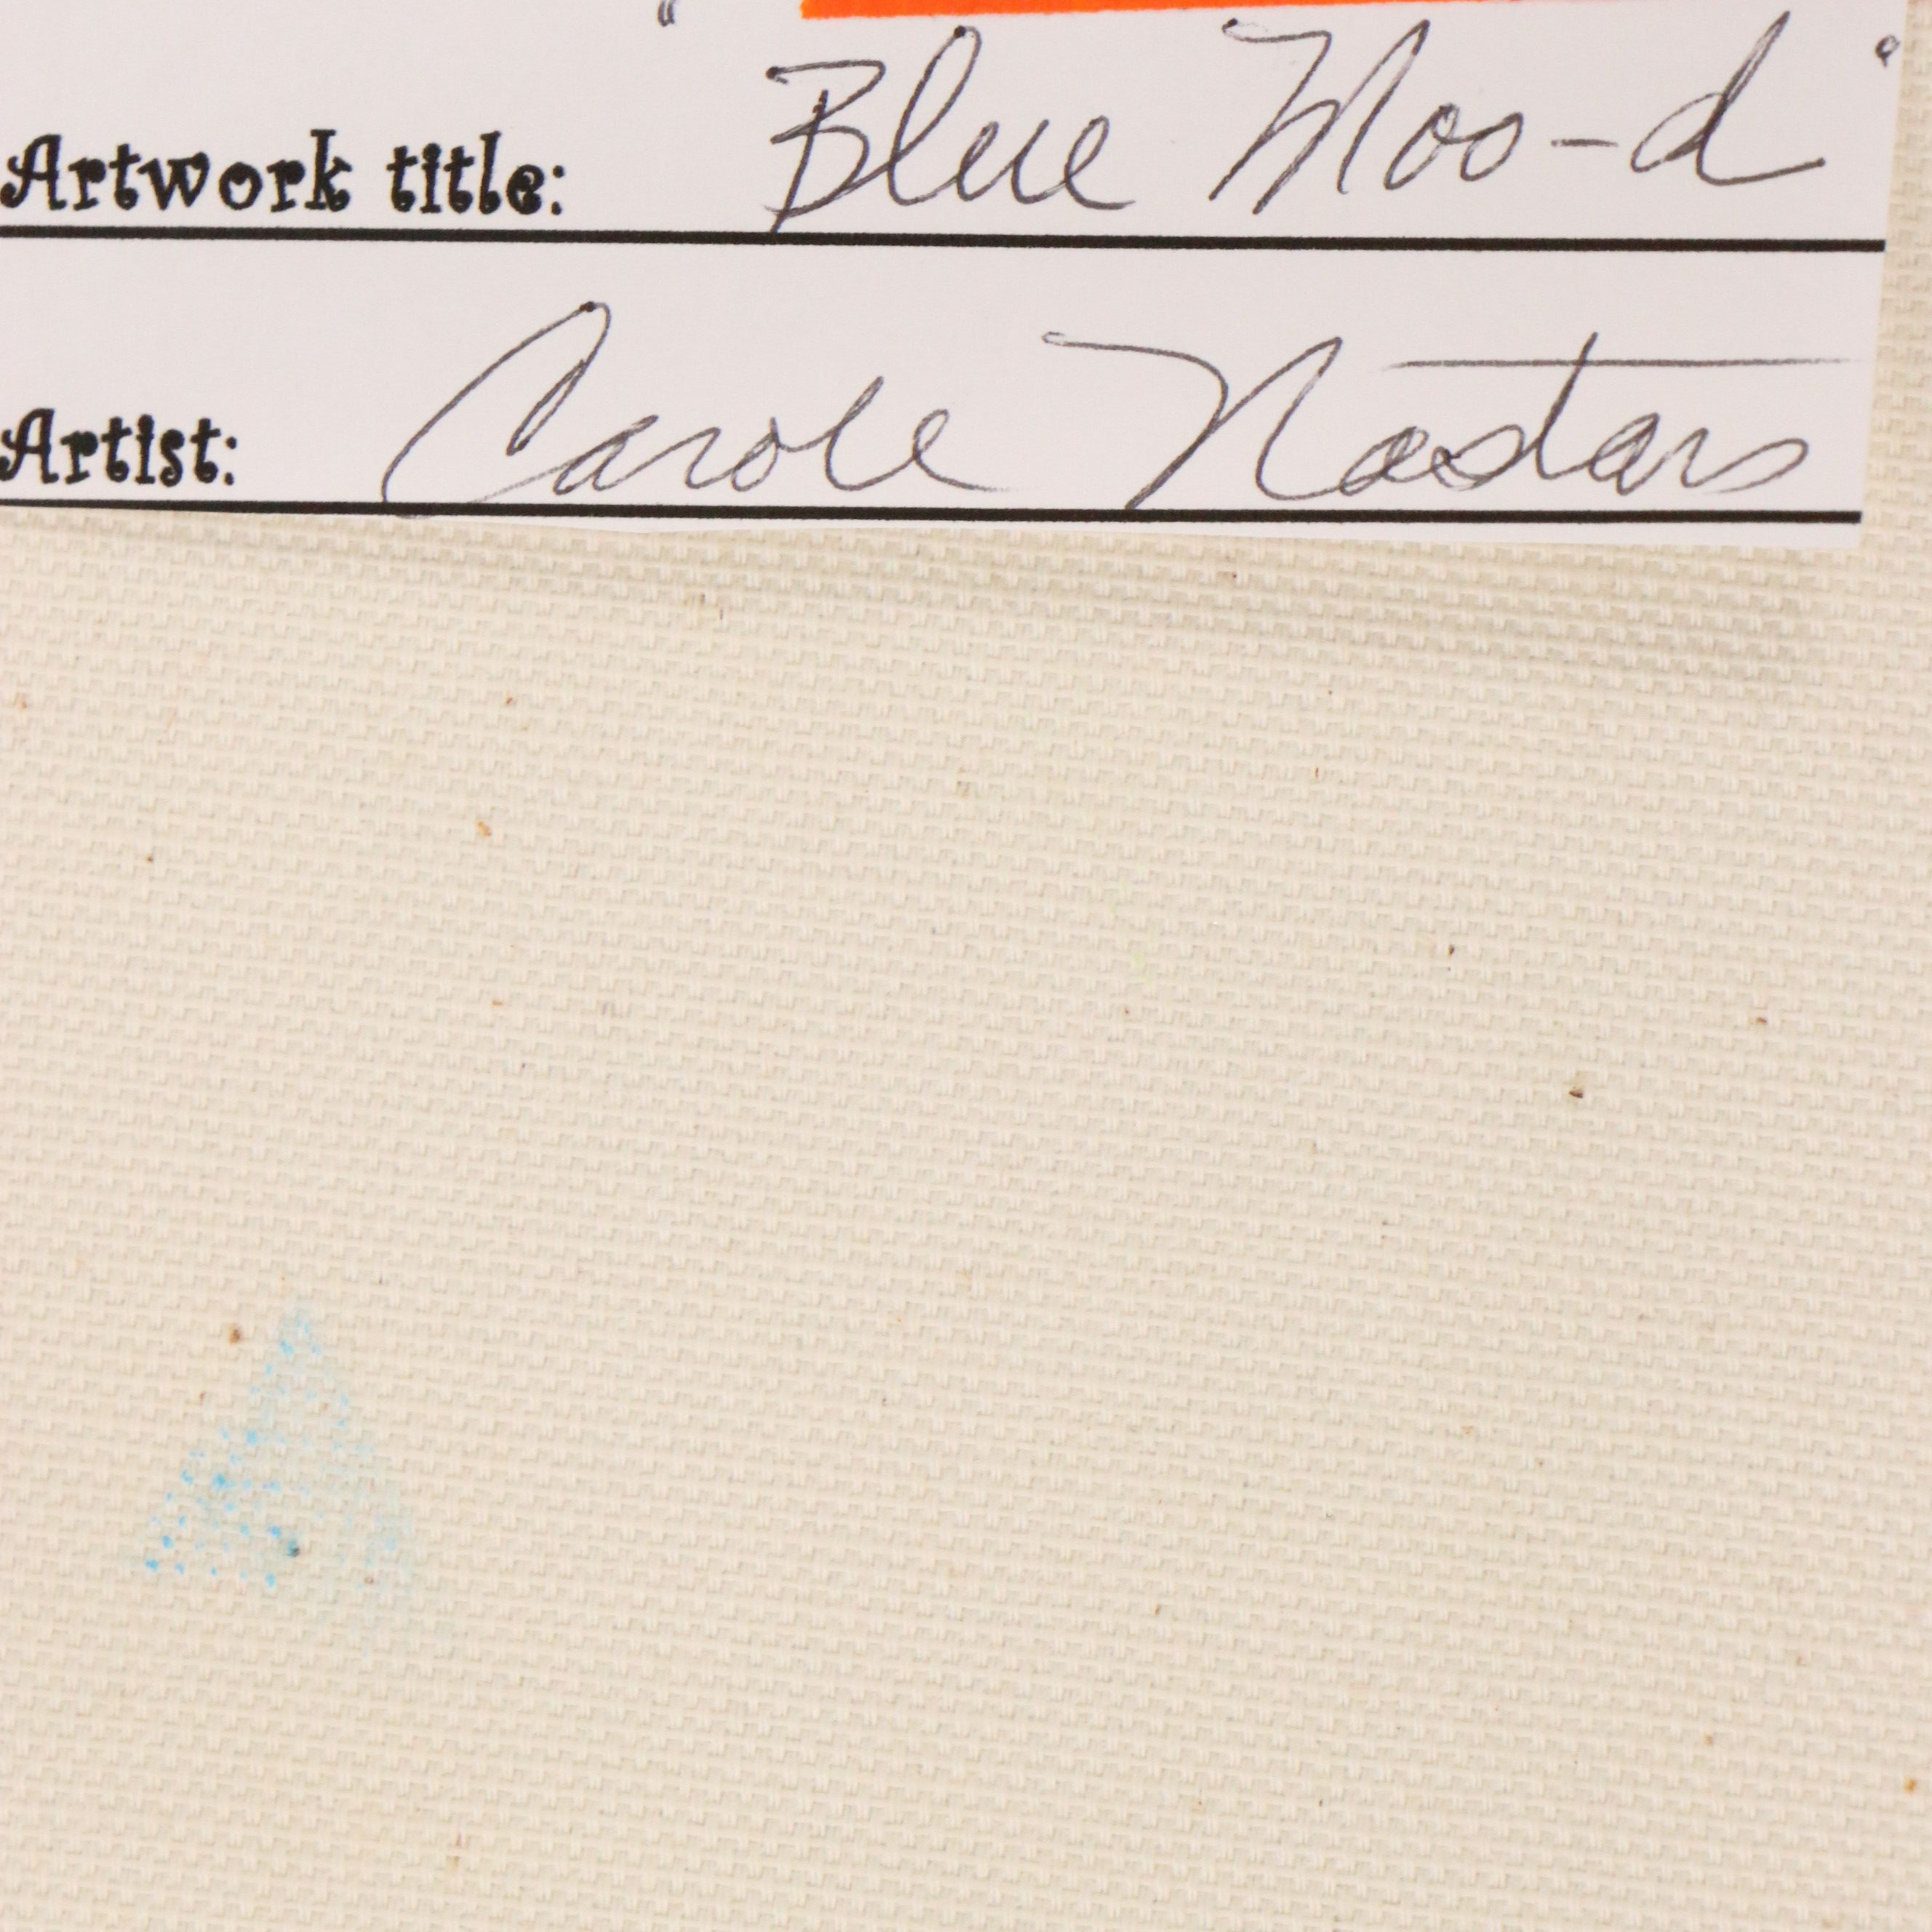 Artwork title: "Blue Moo-d"
Artist: Carole Nastars